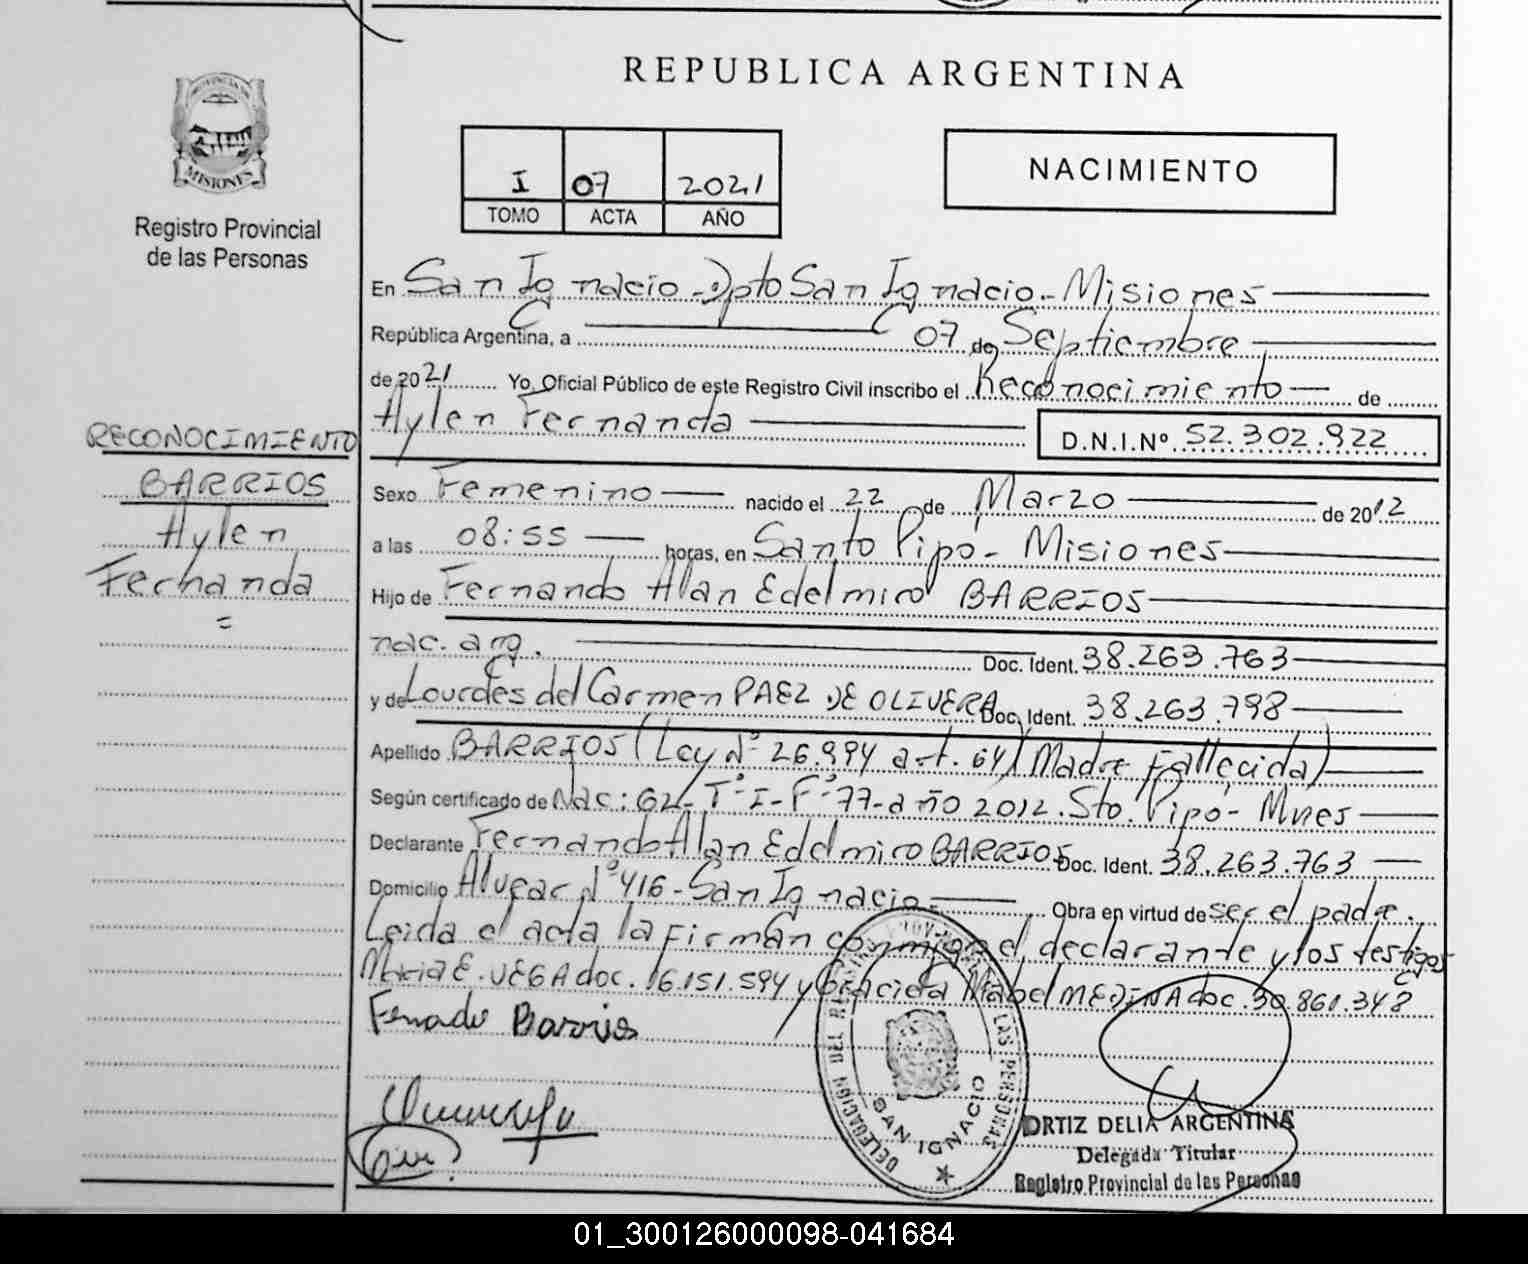 REPUBLICA ARGENTINA
PROVINCIA DE
MISIONES
Registro Provincial
de las Personas
I 07 2021
TOMO ACTA AÑO
NACIMIENTO
En San Ignacio - Dpto San Ignacio - Misiones
República Argentina, a 07 de Septiembre
de 2021 Yo, Oficial Público de este Registro Civil inscribo el Reconocimiento de
Aylen Fernanda D.N.I.Nº 52.302.922
RECONOCIMIENTO
BARRIOS
Aylen
Fernanda
=
Sexo Femenino nacido el 22 de Marzo de 2012
a las 08:55 horas, en Santo Pipó - Misiones
Hijo de Fernando Alan Edelmiro BARRIOS
nac. arg. Doc. Ident. 38.263.763
y de Lourdes del Carmen PAEZ DE OLIVERA Doc. Ident. 38.263.798
Apellido BARRIOS (Ley Nº 26.994 art. 64) (Madre Fallecida)
Según certificado de Nac: 62 - Tº I - Fº 77 - año 2012. Sto. Pipó - Mnes
Declarante Fernando Alan Edelmiro BARRIOS Doc. Ident. 38.263.763
Domicilio Alvear Nº 416 - San Ignacio - Obra en virtud de ser el padre.
Leida el acta la firman conmigo el declarante y los testigos
Maria E. VEGA doc. 16.151.594 y Graciela Mabel MEDINA doc. 30.861.348
Fernado Barrios
DELEGACION DEL REGISTRO PROVINCIAL DE LAS PERSONAS
SAN IGNACIO
ORTIZ DELIA ARGENTINA
Delegada Titular
Registro Provincial de las Personas
01_300126000098-041684